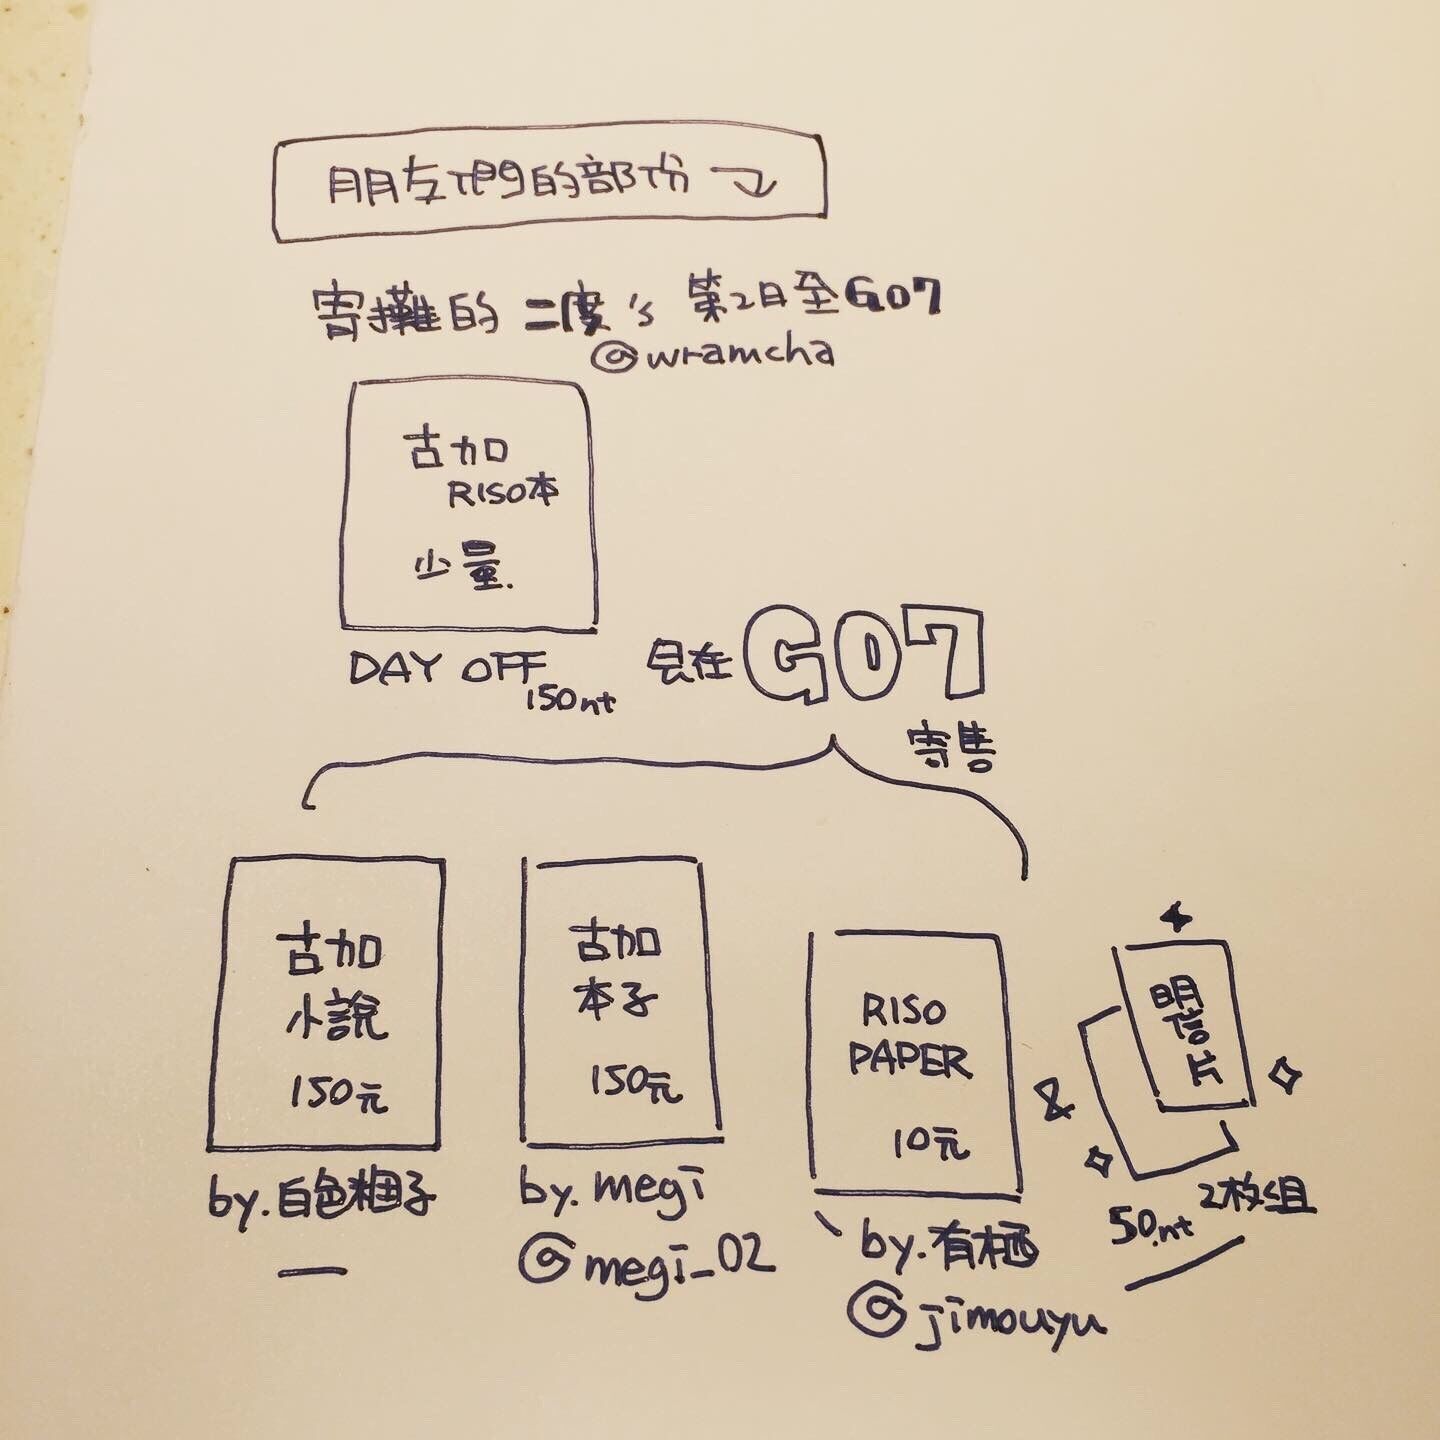 朋友們的部份
寄攤的 二度's 第2日至G07
@wramcha
古加
RISO本
少量.
DAY OFF
150nt
只在 G07
寄售
古加
小說
150元
by.白色糰子
古加
本子
150元
by.megi
@megi_02
RISO
PAPER
10元
by.有栖
@jimouyu
&
明信片
50.nt 2枚組